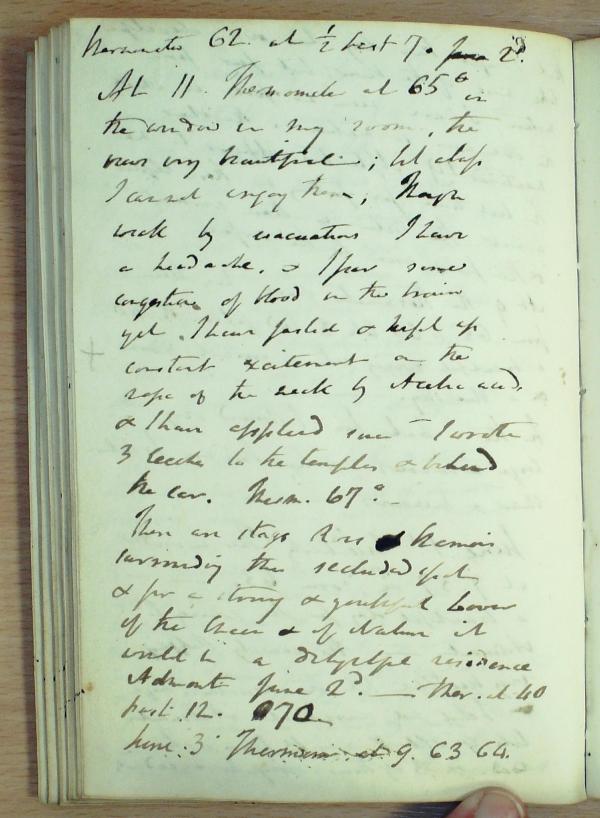 barometer 62. at ½ past 7. June 2d.
At 11. Thermometer at 65° in
the window in my room, the
views very beautiful; but alas
I cannot enjoy them, though
weak by evacuations I have
a headache. & I fear some
congestion of blood in the brain
yet. I have fasted & kept up
constant excitement on the
nape of the neck by Acetic acid,
& I have applied since I wrote
3 leeches to the temples & behind
the ear. Therm. 67°. –
There are stags & chamois
surrounding this secluded spot
& for a strong & youthful Lover
of the Chace & of Nature it
would be a delightful residence
Admont June 2d. — Ther. at 40
past 12. 70
June. 3 Thermom at 9. 63 64.